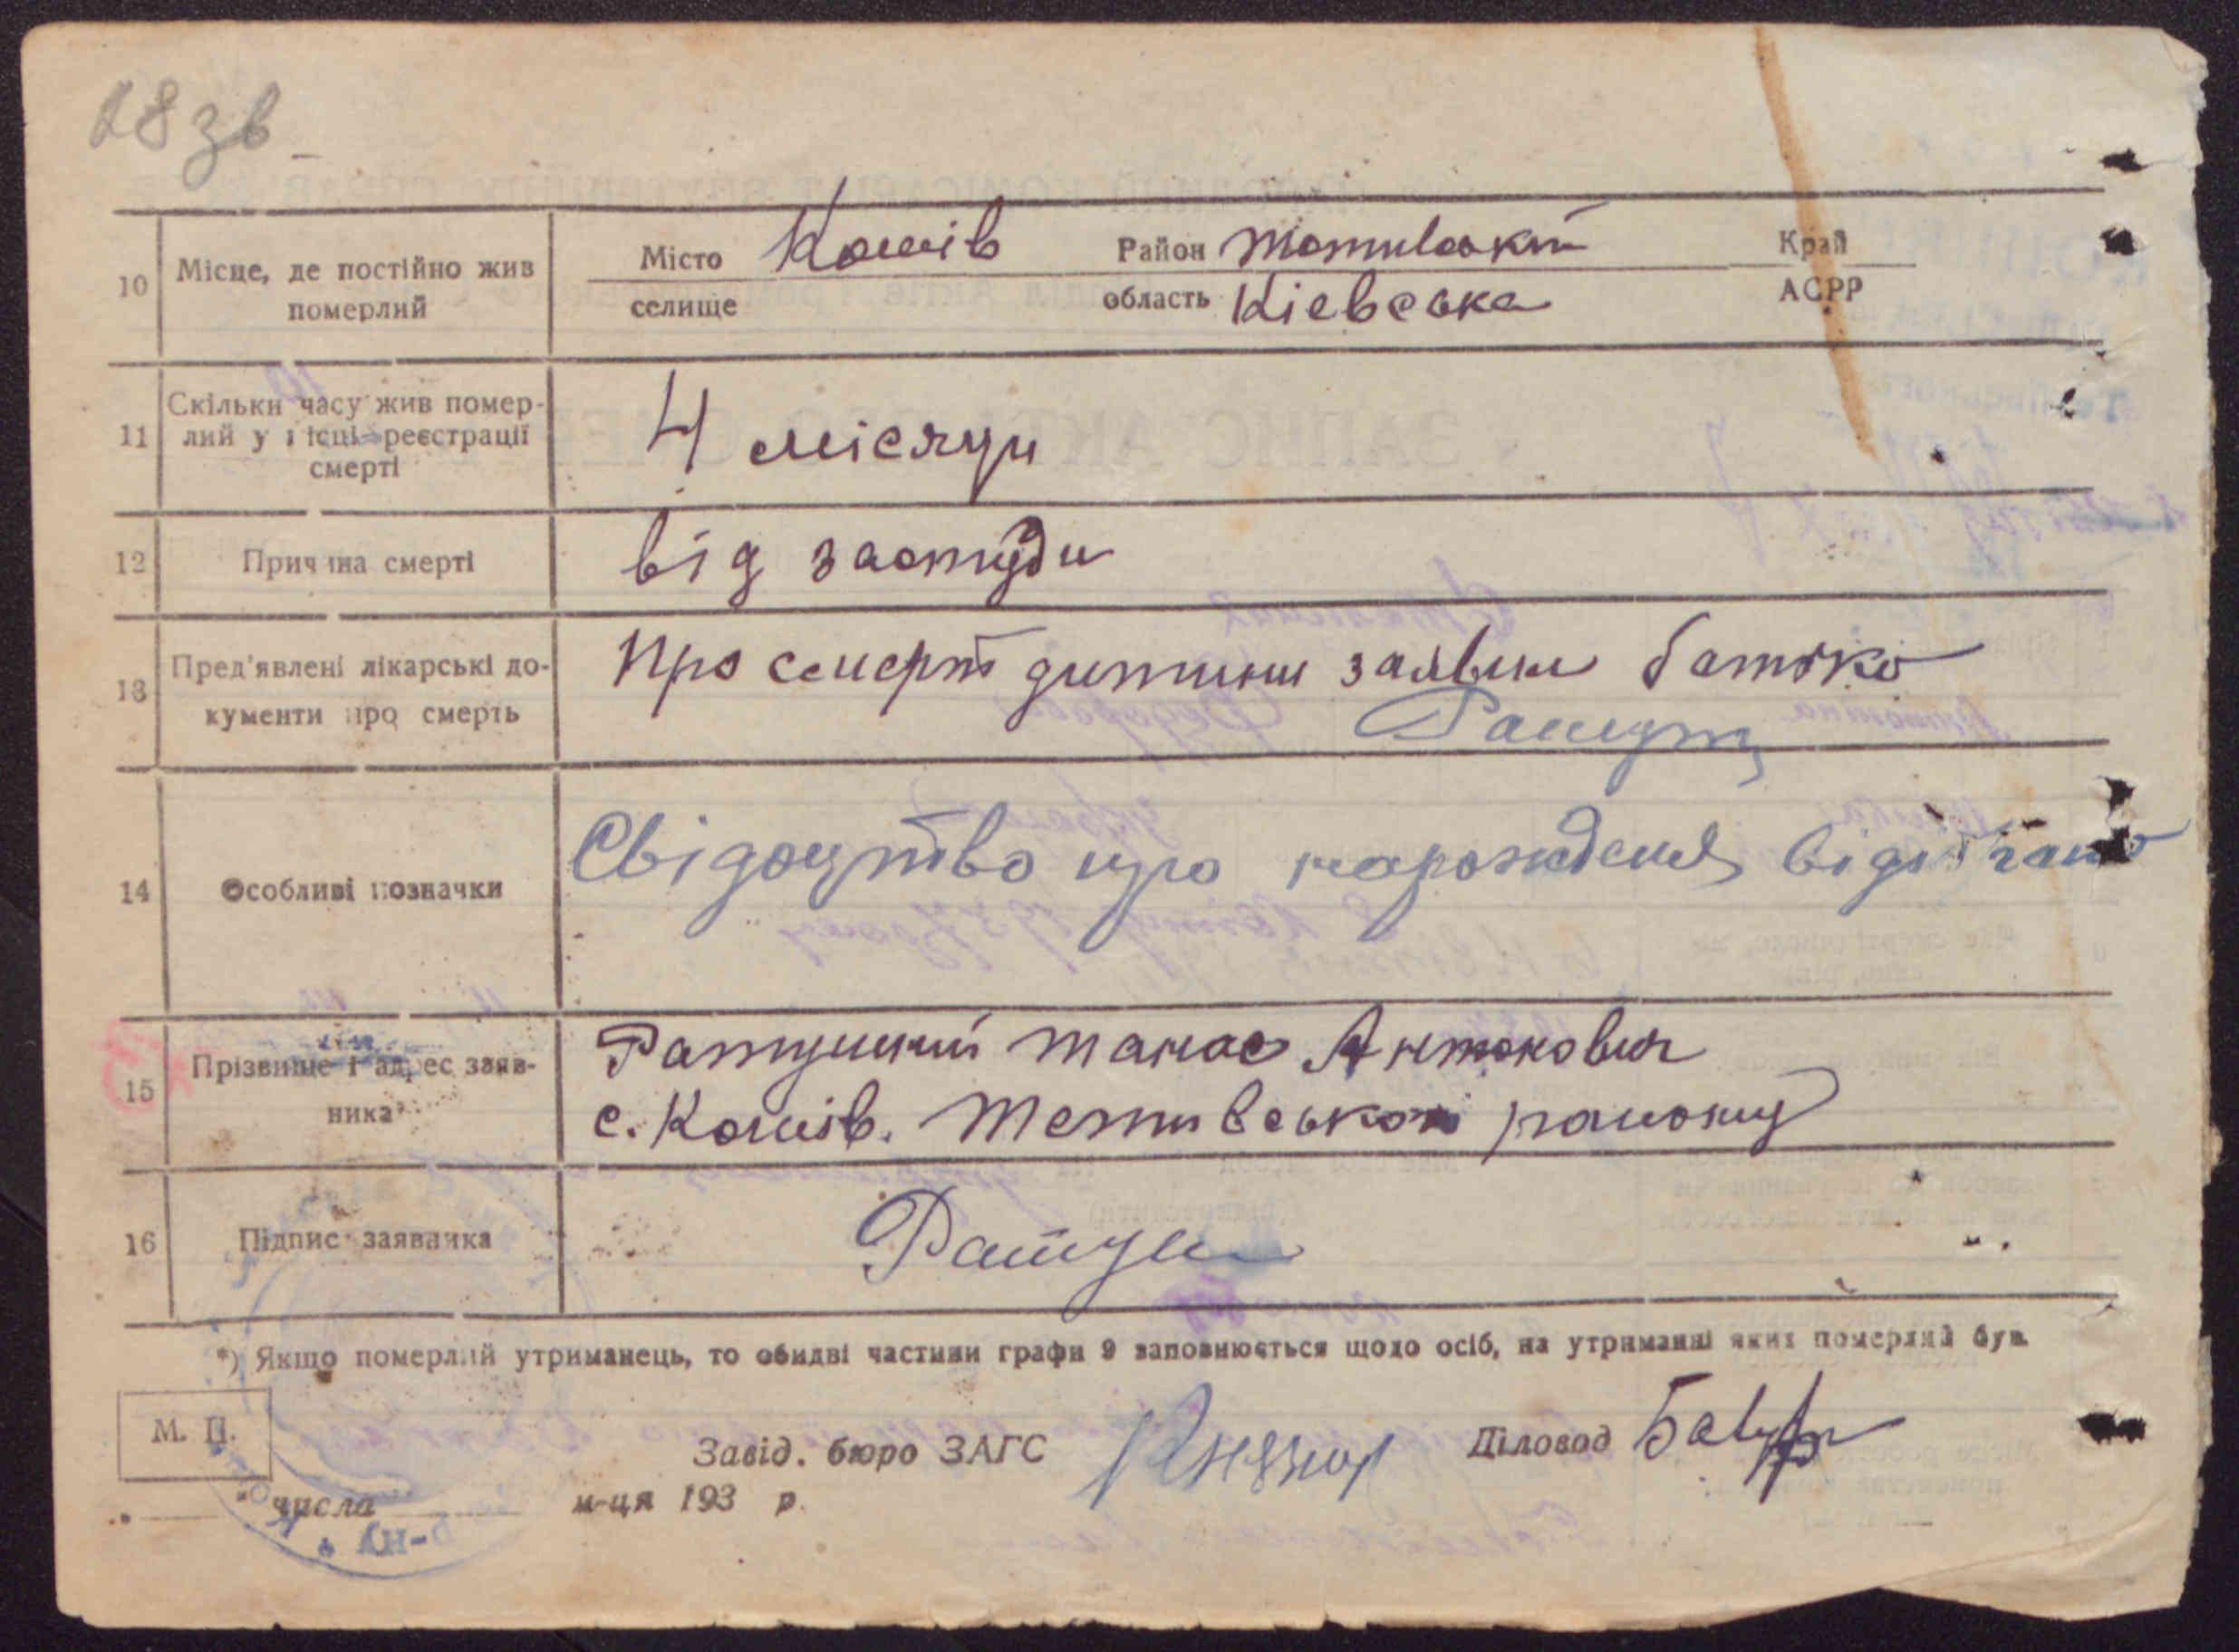 28 зв
10 Місце, де постійно жив померлий
Місто Кошів Район Тетиївський Край
селище область Кіевська АСРР
11 Скільки часу жив померлий у місці реєстрації смерті
4 місяци
12 Причина смерті
від застуди
13 Пред'явлені лікарські документи про смерть
Про смерть дитини заявил батько
14 Особливі позначки
Свідоцтво про нарождения
15 Прізвище і адрес заявника
Танас Антонович
с. Кошів. Тетиївського району
16 Підпис заявника
*) Якщо померлий утриманець, то обидві частини графи 9 заповнюється щодо осіб, на утриманні яких померлий був.
М. П.
Завід. бюро ЗАГС Діловод
" числа м-ця 193 р.